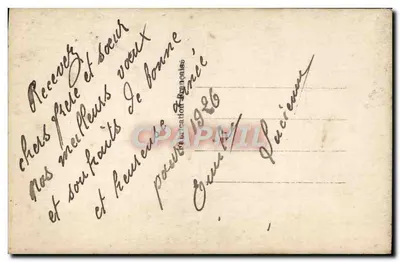 Recevez
chers frère et sœur
nos meilleurs vœux
et souhaits de bonne
et heureuse année
pour 1926
Lucienne
Fabrication Française
CPRAMA